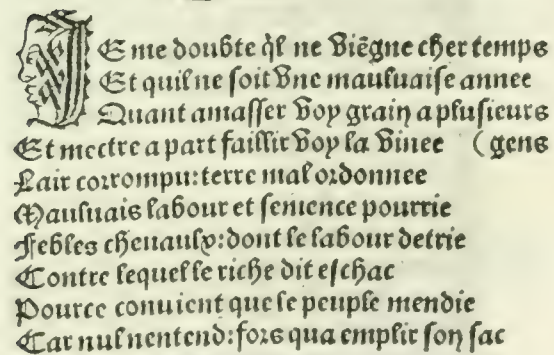 IE me doubte q̃l ne viẽgne cher temps
Et quil ne soit vne mauluaise annee
Quant amasser voy grain a plusieurs
Et mectre a part faillir voy la vinee (gens
Lair corrompu: terre mal ordonnee
Mauluais labour et semence pourrie
Febles cheuaulx: dont le labour detrie
Contre lequel le riche dit eschac
Pource conuient que le peuple mendie
Car nul nentend: fors qua emplir son sac